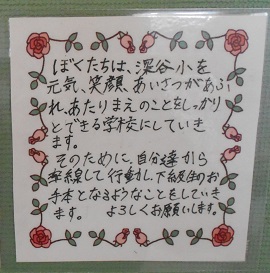 ぼくたちは、深谷小を
元気、笑顔、あいさつがあふ
れ、あたりまえのことをしっかり
とできる学校にしていき
ます。
そのために、自分達から
率線して行動し、下級生のお
手本となるようなことをしていき
ます。 よろしくお願いします。